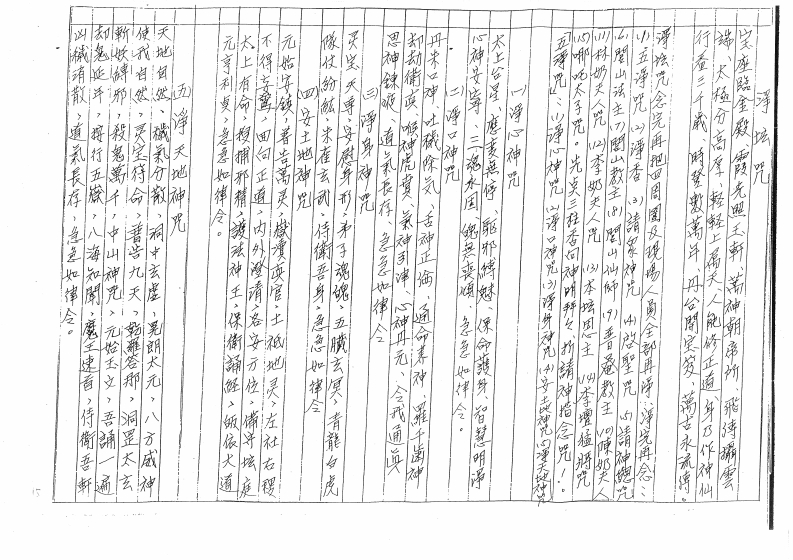 淨壇咒
寶座臨金殿、霞光照玉軒、萬神朝帝所、飛舄躡雲
端、太極分高厚、輕輕上屬天、人能修正道、身乃作神仙
行滿三千歲、時登數萬年、丹台開寶笈、萬古永流傳。
淨壇咒念完再把四周圍及現場人員全部再淨、淨完再念：
(1)五淨咒 (2)淨香 (3)請眾神咒 (4)啟聖咒 (5)請神總咒
(6)閭山法主 (7)閭山教主 (8)閭山仙師 (9)普菴教主 (10)陳奶夫人
(11)林奶夫人咒 (12)李奶夫人咒 (13)本壇恩主 (14)李壇猛將咒
(15)哪吒太子咒。先点三柱香向神明拜々祈請神指念咒！。
「五淨咒」：(1)淨心神咒 (2)淨口神咒 (3)淨身神咒 (4)安土地神咒 (5)淨天地神咒
(一)淨心神咒
太上台星、應變無停、驅邪縛魅、保命護身、智慧明淨
心神安寧、三魂永固、魄無喪傾、急急如律令。
(二)淨口神咒
丹朱口神、吐穢除氛、舌神正倫、通命養神、羅千齒神
却劫衛真、喉神虎賁、氣神引津、心神丹元、令我通真
思神鍊液、道氣長存、急急如律令
(三)淨身神咒
灵宝天尊、安慰身形、弟子魂魄、五臟玄冥、青龍白虎
隊仗紛紜、朱雀玄武、侍衛吾身、急急如律令
(四)安土地神咒
元始安鎮、普告萬灵、嶽瀆真官、土祗地灵、左社右稷
不得妄驚、回向正道、內外澄清、各安方位、備守坛庭
太上有命、搜捕邪精、護法神王、保衛誦經、皈依大道
元亨利貞、急急如律令。
五 淨天地神咒
天地自然、穢氣分散、洞中玄虛、晃朗太元、八方威神
使我自然、灵宝符命、普告九天、乾羅答那、洞罡太玄
斬妖縛邪、殺鬼萬千、中山神咒、元始玉文、吾誦一遍
却鬼延年、按行五嶽、八海知聞、魔王速首、侍衛吾軒
凶穢消散、道氣長存、急急如律令。
15